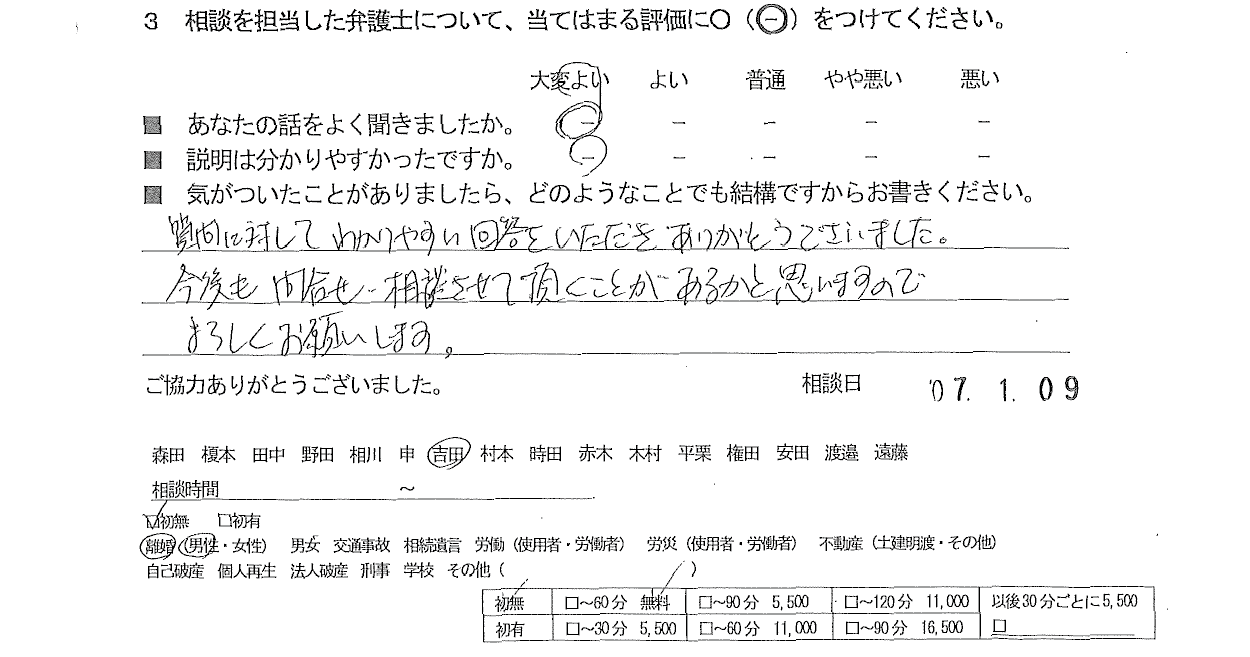 3 相談を担当した弁護士について、当てはまる評価に○（⊖）をつけてください。
大変よい よい 普通 やや悪い 悪い
■ あなたの話をよく聞きましたか。 － － － － －
■ 説明は分かりやすかったですか。 － － － － －
■ 気がついたことがありましたら、どのようなことでも結構ですからお書きください。
質問に対してわかりやすい回答をいただきありがとうございました。
今後も問合せ・相談させて頂くことがあるかと思いますので
よろしくお願いします。
ご協力ありがとうございました。 相談日 '07. 1. 09
森田 榎本 田中 野田 相川 申 吉田 村本 時田 赤木 木村 平栗 権田 安田 渡邉 遠藤
相談時間 ～
□初無 □初有
離婚（男性・女性） 男女 交通事故 相続遺言 労働（使用者・労働者） 労災（使用者・労働者） 不動産（土建明渡・その他）
自己破産 個人再生 法人破産 刑事 学校 その他（ ）
初無 □～60分 無料 □～90分 5,500 □～120分 11,000 以後30分ごとに5,500
初有 □～30分 5,500 □～60分 11,000 □～90分 16,500 □